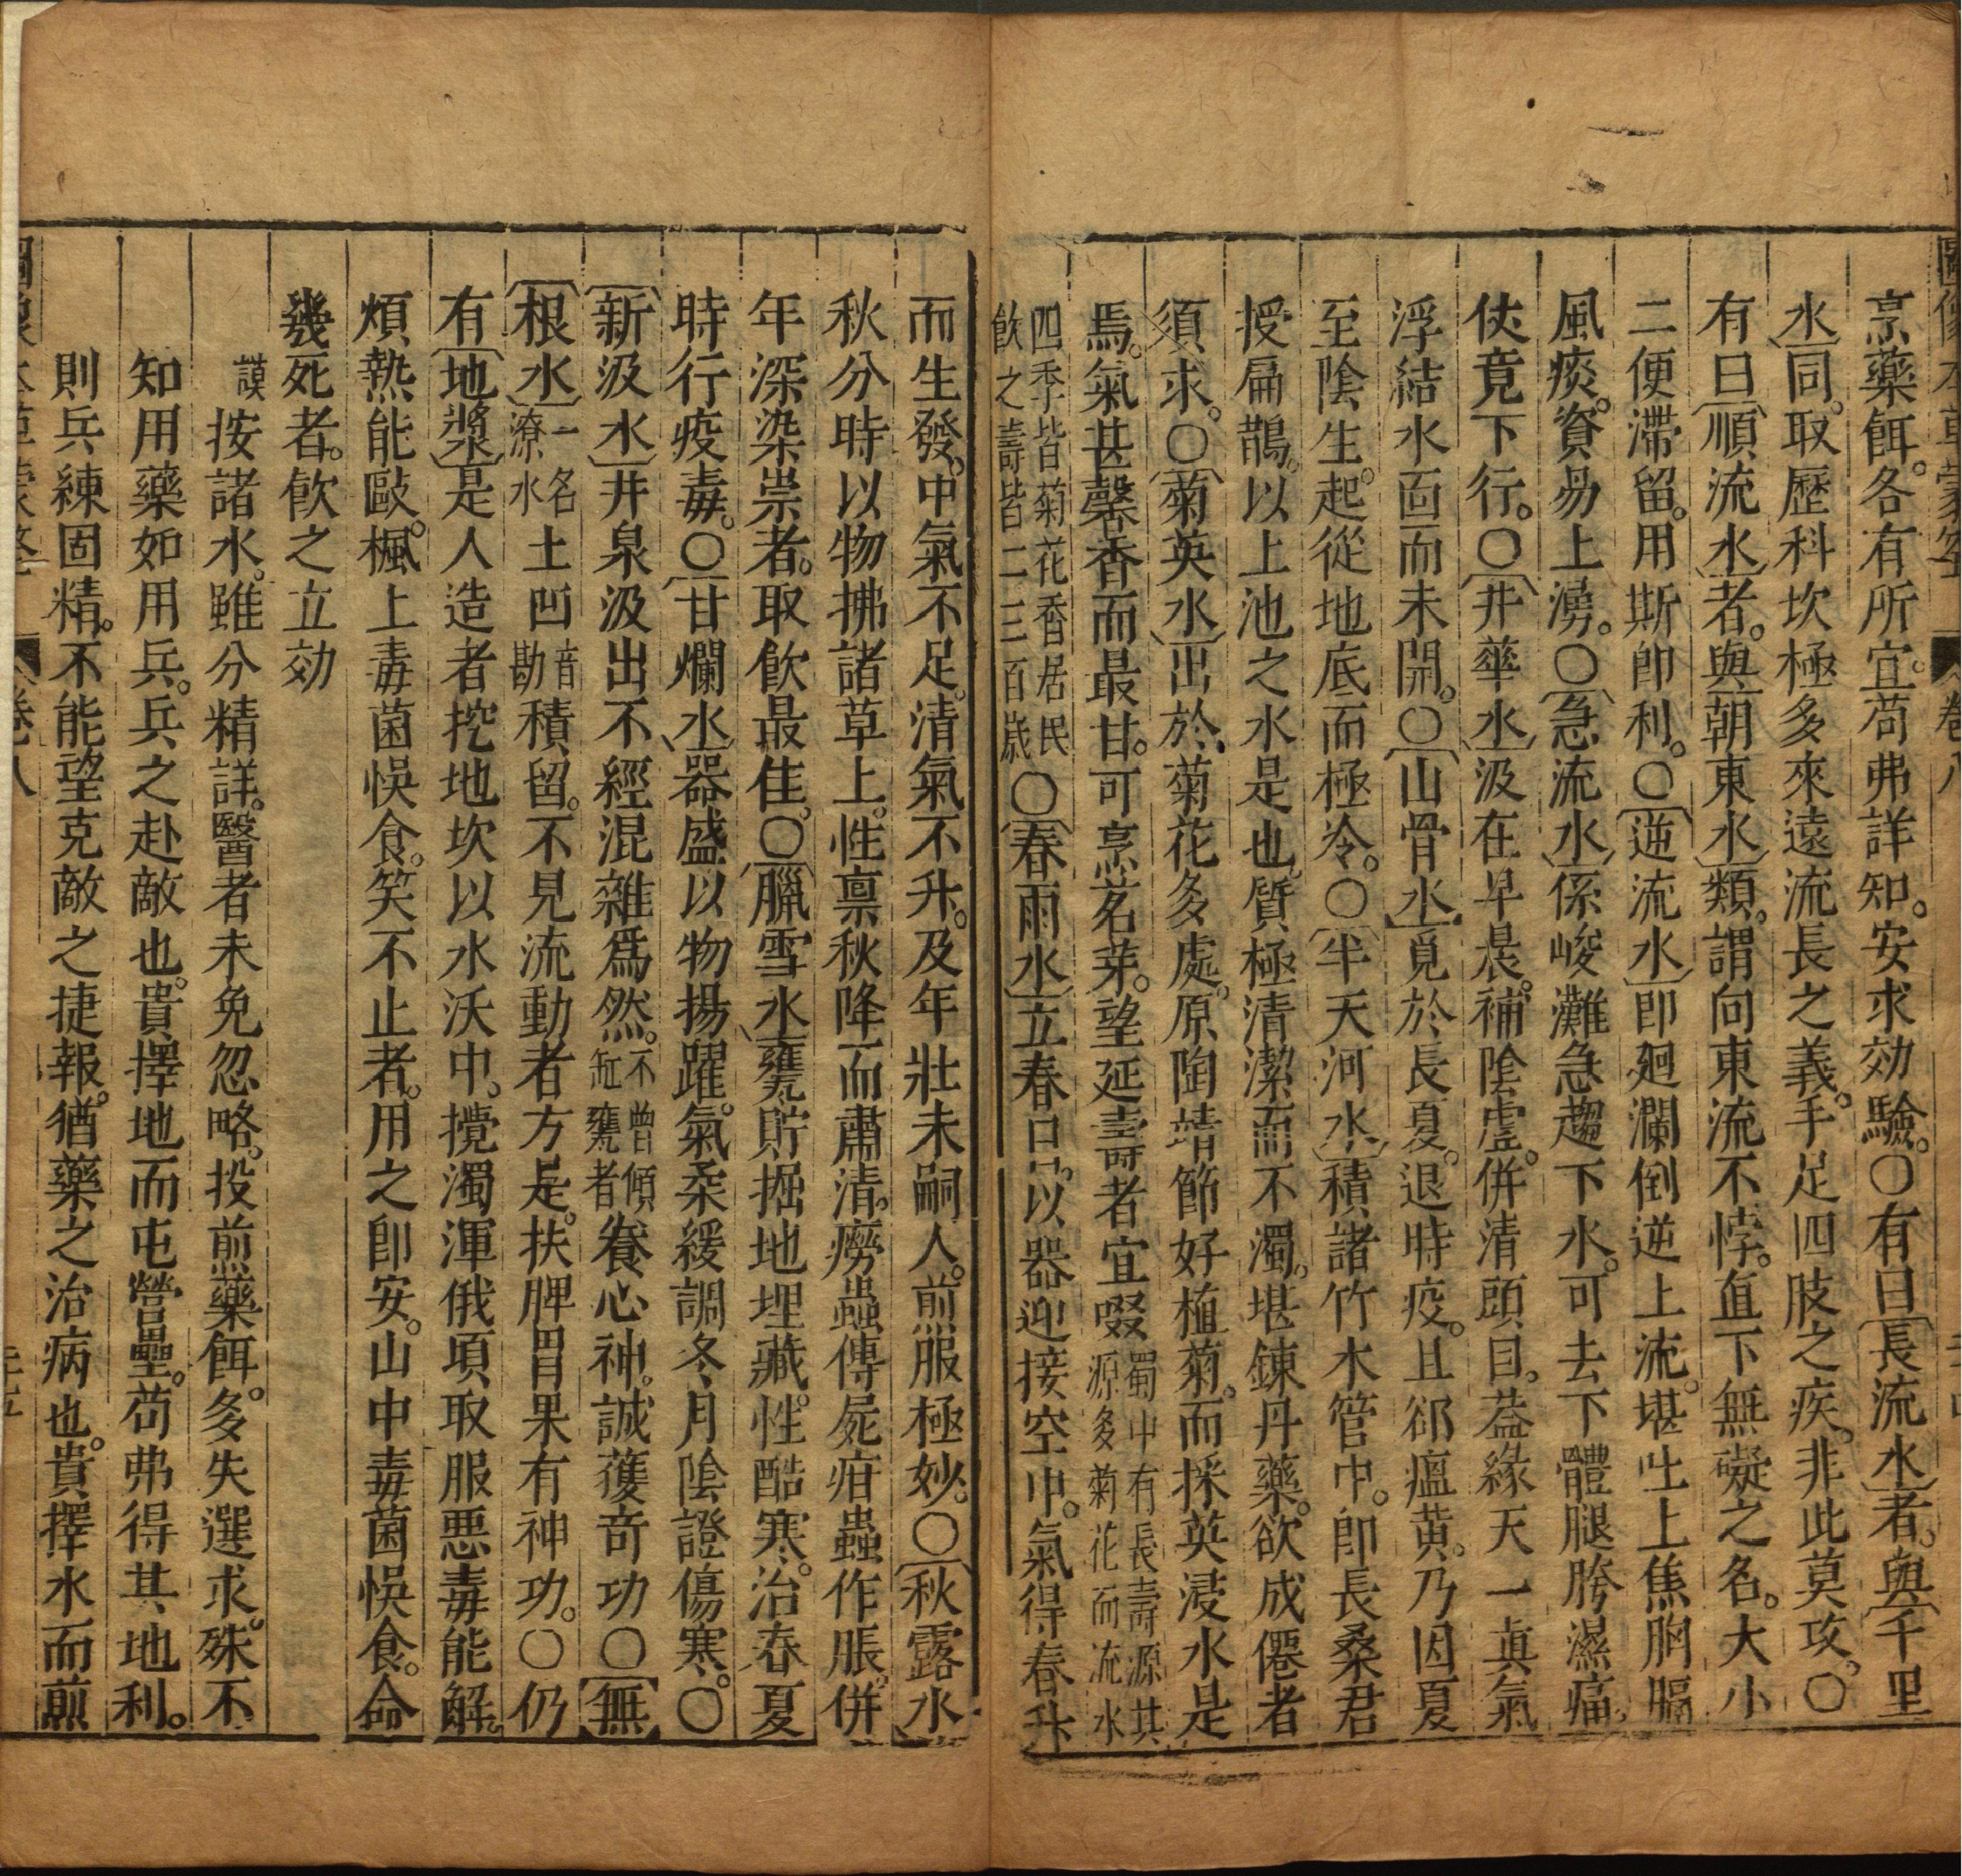 圖像本草蒙筌 卷八
烹藥餌。各有所宜。苟弗詳知。安求効驗。○有曰長流水者。與千里
水同。取歷科坎極多來遠流長之義。手足四肢之疾。非此莫攻。○
有曰順流水者。與朝東水類。謂向東流不悖。直下無礙之名。大小
二便滯留。用斯卽利。○逆流水卽廻瀾倒逆上流。堪吐上焦胸膈
風痰。資易上湧。○急流水係峻灘急趨下水。可去下體腿胯濕痛。
伎竟下行。○井華水汲在早晨。補陰虛。併清頭目。葢緣天一真氣
浮結水面而未開。○山骨水覓於長夏。退時疫。且郤瘟黃。乃因夏
至陰生。起從地底而極冷。○半天河水積諸竹木管中。卽長桑君
授扁鵲。以上池之水是也。質極清潔而不濁。堪鍊丹藥。欲成僊者
須求。○菊英水出於菊花多處。原陶靖節好植菊。而採英浸水是
焉。氣甚馨香而最甘。可烹茗芽。望延壽者宜啜蜀中有長壽源其源多菊花而流水
四季皆菊花香居民飲之壽皆二三百歲○春雨水立春日。以器迎接空中。氣得春升
而生發。中氣不足。清氣不升。及年壯未嗣人。煎服極妙。○秋露水
秋分時以物拂諸草上。性禀秋降而肅清。癆蟲傳屍疳蟲作脹。併
年深染祟者。取飲最佳。○臘雪水甕貯掘地埋藏。性酷寒。治春夏
時行疫毒。○甘爛水器盛以物揚躍。氣柔緩調冬月陰證傷寒。○
新汲水井泉汲出不經混雜爲然。不曾傾缸甕者養心神。誠獲奇功○無
根水一名潦水土凹音勘積留。不見流動者方是。扶脾胃果有神功。○仍
有地漿是人造者挖地坎以水沃中。攪濁渾俄頃取服惡毒能解。
煩熱能敺。楓上毒菌悞食。笑不止者。用之卽安。山中毒菌悞食。命
幾死者。飲之立効
謨按諸水。雖分精詳。醫者未免忽略。投煎藥餌。多失選求。殊不
知用藥如用兵。兵之赴敵也。貴擇地而屯營壘。苟弗得其地利。
則兵練固精。不能望克敵之捷報。猶藥之治病也。貴擇水而煎
卷八